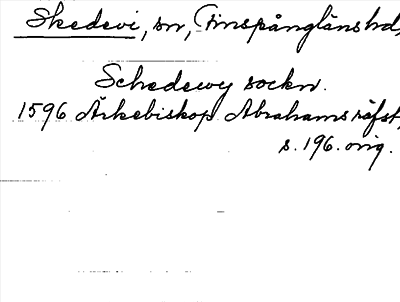 Skedevi, sn, Finspånglänshd,
Schedewy sockn.
1596 Ärkebiskop Abrahams räfst,
s. 196. orig.